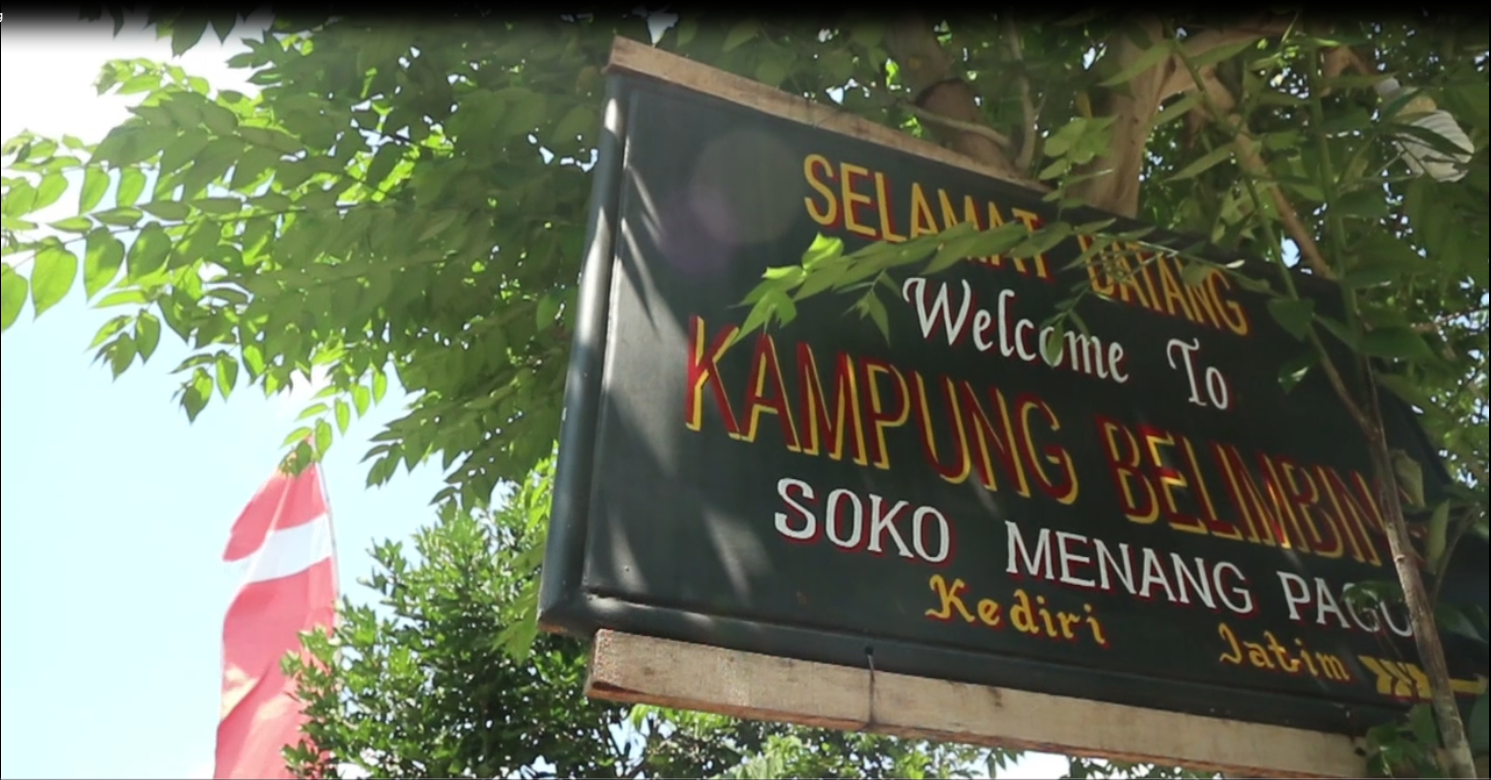 SELAMAT DATANG
Welcome To
KAMPUNG BELIMBING
SOKO MENANG PAGU
Kediri Jatim